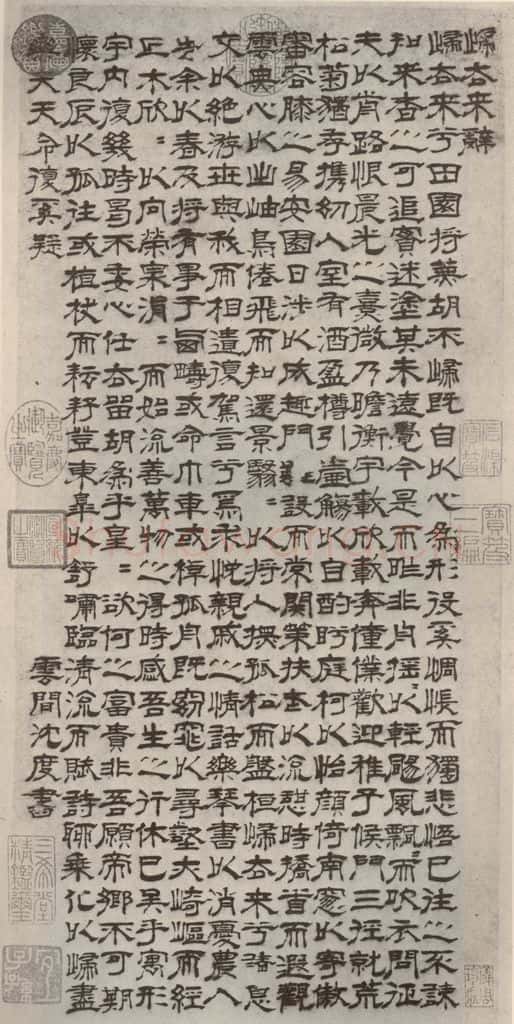 歸去來辭
歸去來兮田園將蕪胡不歸既自以心為形役奚惆悵而獨悲悟已往之不諫
知來者之可追實迷塗其未遠覺今是而昨非舟搖〻以輕颺風飄〻而吹衣問征
夫以前路恨晨光之熹微乃瞻衡宇載欣載奔僮僕歡迎稚子候門三徑就荒
松菊猶存携幼入室有酒盈樽引壺觴以自酌眄庭柯以怡顏倚南窻以寄傲
審容膝之易安園日涉以成趣門雖設而常關策扶老以流憩時矯首而遐觀
雲無心以出岫鳥倦飛而知還景翳〻以將入撫孤松而盤桓歸去來兮請息
交以絕游世與我而相遺復駕言兮焉求悅親戚之情話樂琴書以消憂農人
告余以春及將有事于西疇或命巾車或棹孤舟既窈窕以尋壑亦崎嶇而經
丘木欣〻以向榮泉涓〻而始流善萬物之得時感吾生之行休已矣乎寓形
宇內復幾時曷不委心任去留胡為乎皇〻欲何之富貴非吾願帝鄉不可期
懷良辰以孤往或植杖而耘耔登東皋以舒嘯臨清流而賦詩聊乘化以歸盡
樂夫天命復奚疑
雲間沈度書
嘉慶御覽之寶
三希堂精鑑璽
宜子孫